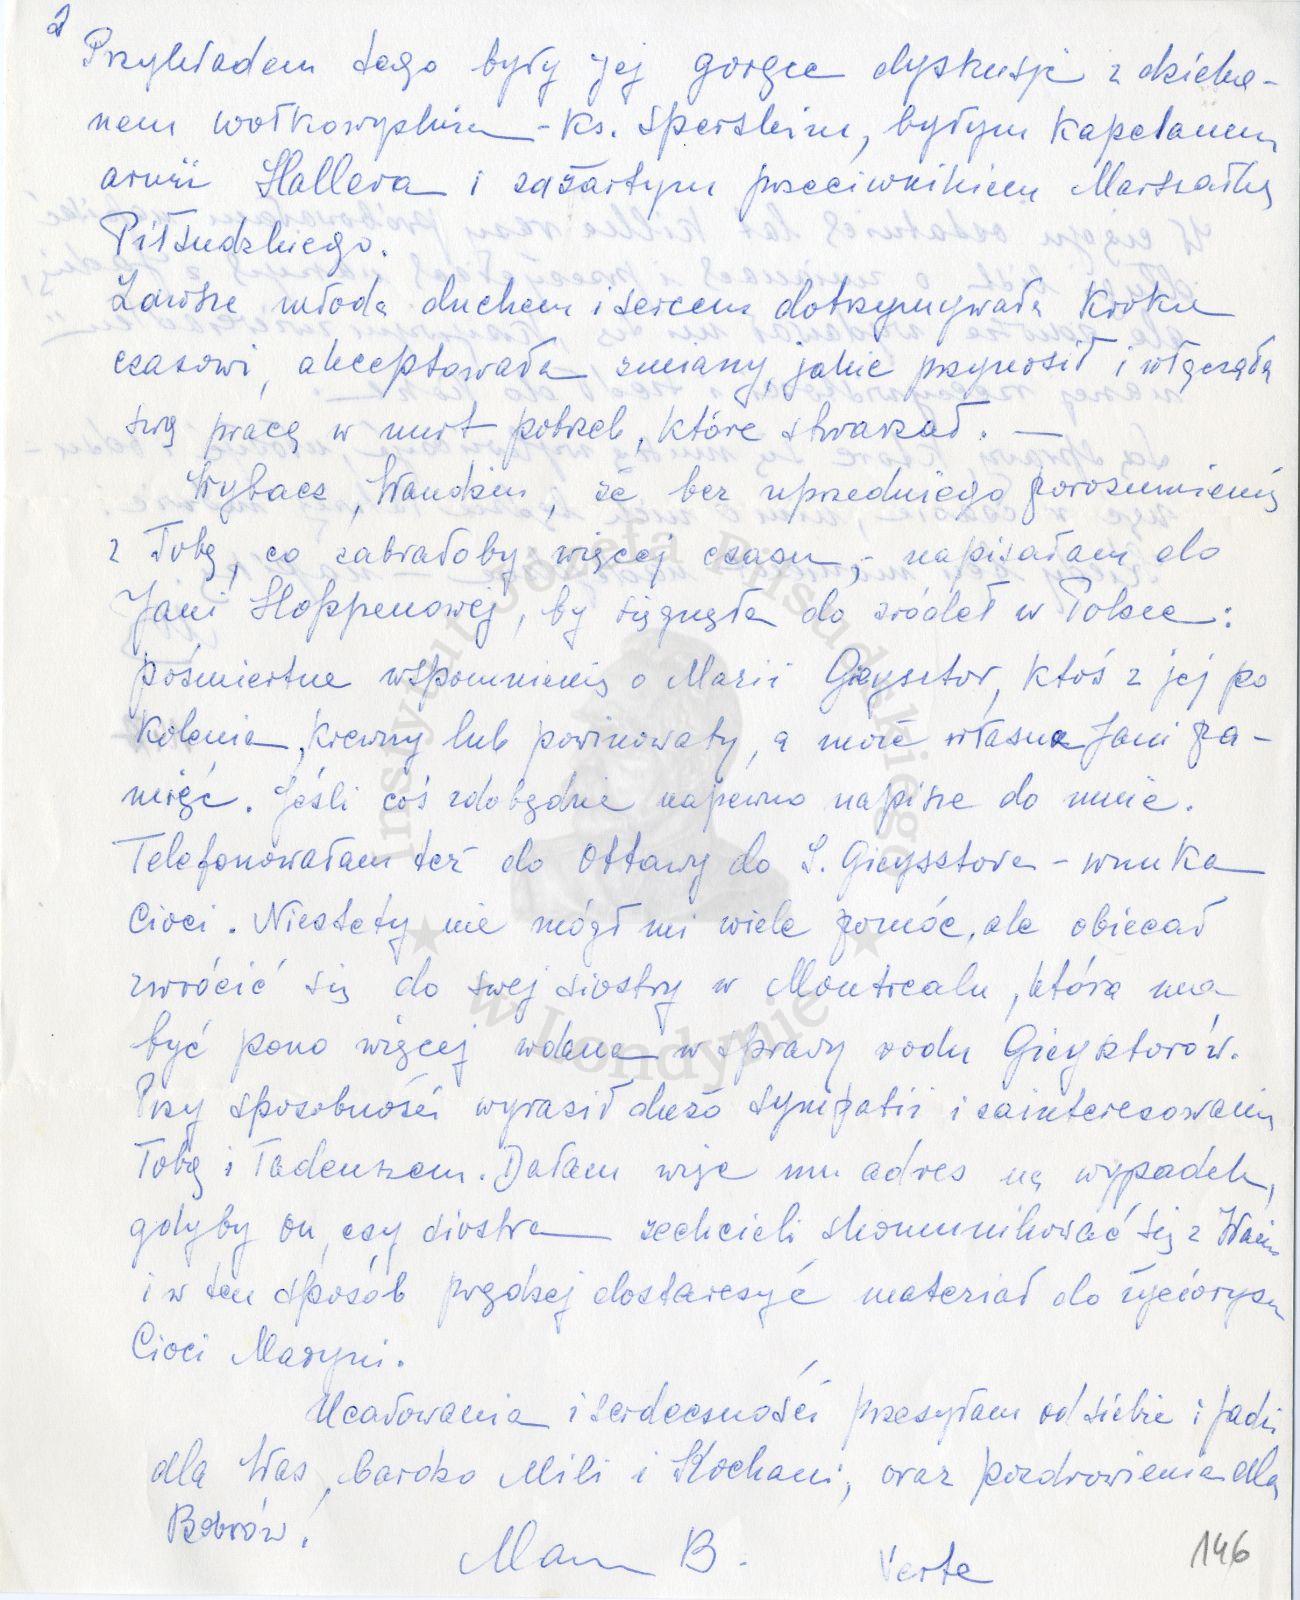 2
Przykładem tego były jej gorące dyskusje z dzieka-
nem wołkowyskim - ks. Sperskim, byłym kapelanem
armii Hallera i zażartym przeciwnikiem Marszałka
Piłsudskiego.
Zawsze młoda duchem i sercem dotrzymywała kroku
czasowi, akceptowała zmiany, jakie przynosił i włączała
swą pracę w nurt potrzeb, które stwarzał. —
Wybacz, Wandziu, że bez uprzedniego porozumienia
z Tobą, co zabrałoby więcej czasu, - napisałam do
Jani Hoppenowej, by sięgnęła do źródeł w Polsce:
pośmiertne wspomnienia o Marii Gieysztor, ktoś z jej po
kolenia, krewny lub powinowaty, a może własna Jani pa-
mięć. Jeśli coś zdobędzie napewno napisze do mnie.
Telefonowałam też do Ottawy do S. Gieysztora - wnuka
Cioci. Niestety nie mógł mi wiele pomóc, ale obiecał
zwrócić się do swej siostry w Montrealu, która ma
być pono więcej wdana w sprawy rodu Gieysztorów.
Przy sposobności wyraził dużo sympatii i zainteresowania
Tobą i Tadeuszem. Dałam więc mu adres na wypadek,
gdyby on, czy siostra zechcieli skomunikować się z Wami
i w ten sposób prędzej dostarczyć materiał do życiorysu
Cioci Maryni.
Ucałowania i serdeczności przesyłam od siebie i Jadzi
dla Was, bardzo Mili i Kochani, oraz pozdrowienia dla
Bobrów.
B.
Verte
146
Instytut Józefa Piłsudskiego
w Londynie